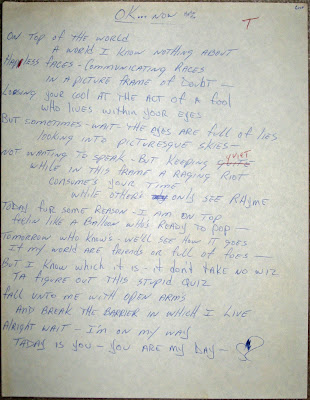 OK... NOW
T
ON TOP OF THE WORLD
A WORLD I KNOW NOTHING ABOUT
HAPLESS FACES - COMMUNICATING RACES
IN A PICTURE FRAME OF DOUBT -
LOSING YOUR COOL AT THE ACT OF A FOOL
WHO LIVES WITHIN YOUR EYES
BUT SOMETIMES - WAIT - THE EYES ARE FULL OF LIES
LOOKING INTO PICTURESQUE SKIES -
NOT WANTING TO SPEAK - BUT KEEPING QUIET
WHILE IN THIS FRAME A RAGING RIOT
CONSUMES YOUR TIME
WHILE OTHERS ONLY SEE RHYME
TODAY FOR SOME REASON - I AM ON TOP
FEELIN LIKE A BALLOON WHO'S READY TO POP -
TOMORROW WHO KNOWS - WE'LL SEE HOW IT GOES
IF MY WORLD ARE FRIENDS OR FULL OF FOES -
BUT I KNOW WHICH IT IS - IT DON'T TAKE NO WIZ
TA FIGURE OUT THIS STUPID QUIZ
FALL UNTO ME WITH OPEN ARMS
AND BREAK THE BARRIER IN WHICH I LIVE
ALRIGHT WAIT - I'M ON MY WAY
TADAY IS YOU - YOU ARE MY DAY -